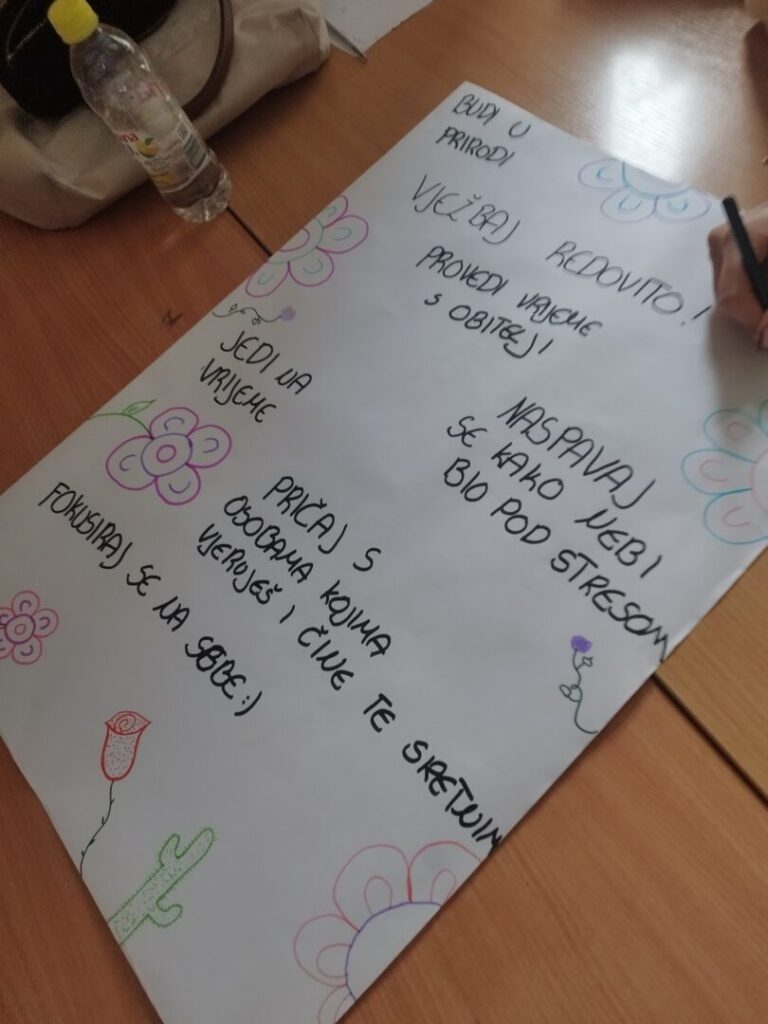 BUDI U
PRIRODI
VJEŽBAJ REDOVITO!
PROVEDI VRIJEME
S OBITELJI
JEDI NA
VRIJEME
NASPAVAJ
SE KAKO NEBI
BIO POD STRESOM
PRIČAJ S
OSOBAMA KOJIMA
VJERUJEŠ I ČINE TE SRETNIM
FOKUSIRAJ SE NA SEBE:)